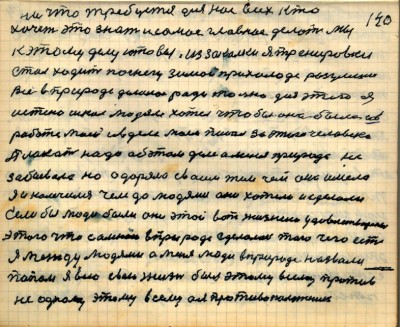 ни что требуется для нас всех кто
140
хочет это знать и самое главное делать мы
к этому делу готовы. Из закалки я тренировки
стал ходить по снегу зимою при холоде разумении
Всё в природе делано ради только для этого я
истено искал людям хотел чтобы она была в
работе моей и в деле моем писал за этого человека
Плакать надо об этом деле а меня природа не
забывала но одоряла своими тем чем она имела
Я и научился чем до людями они хотели и сделали
Если бы люди были они этой вот жизнею удовлетворены
этого что самого в природе сделали того чего есть
Я между людями а меня люди в природе назвали
папом Я всю свою жизнь был этому всему против
не одному этому всему а я противоположник